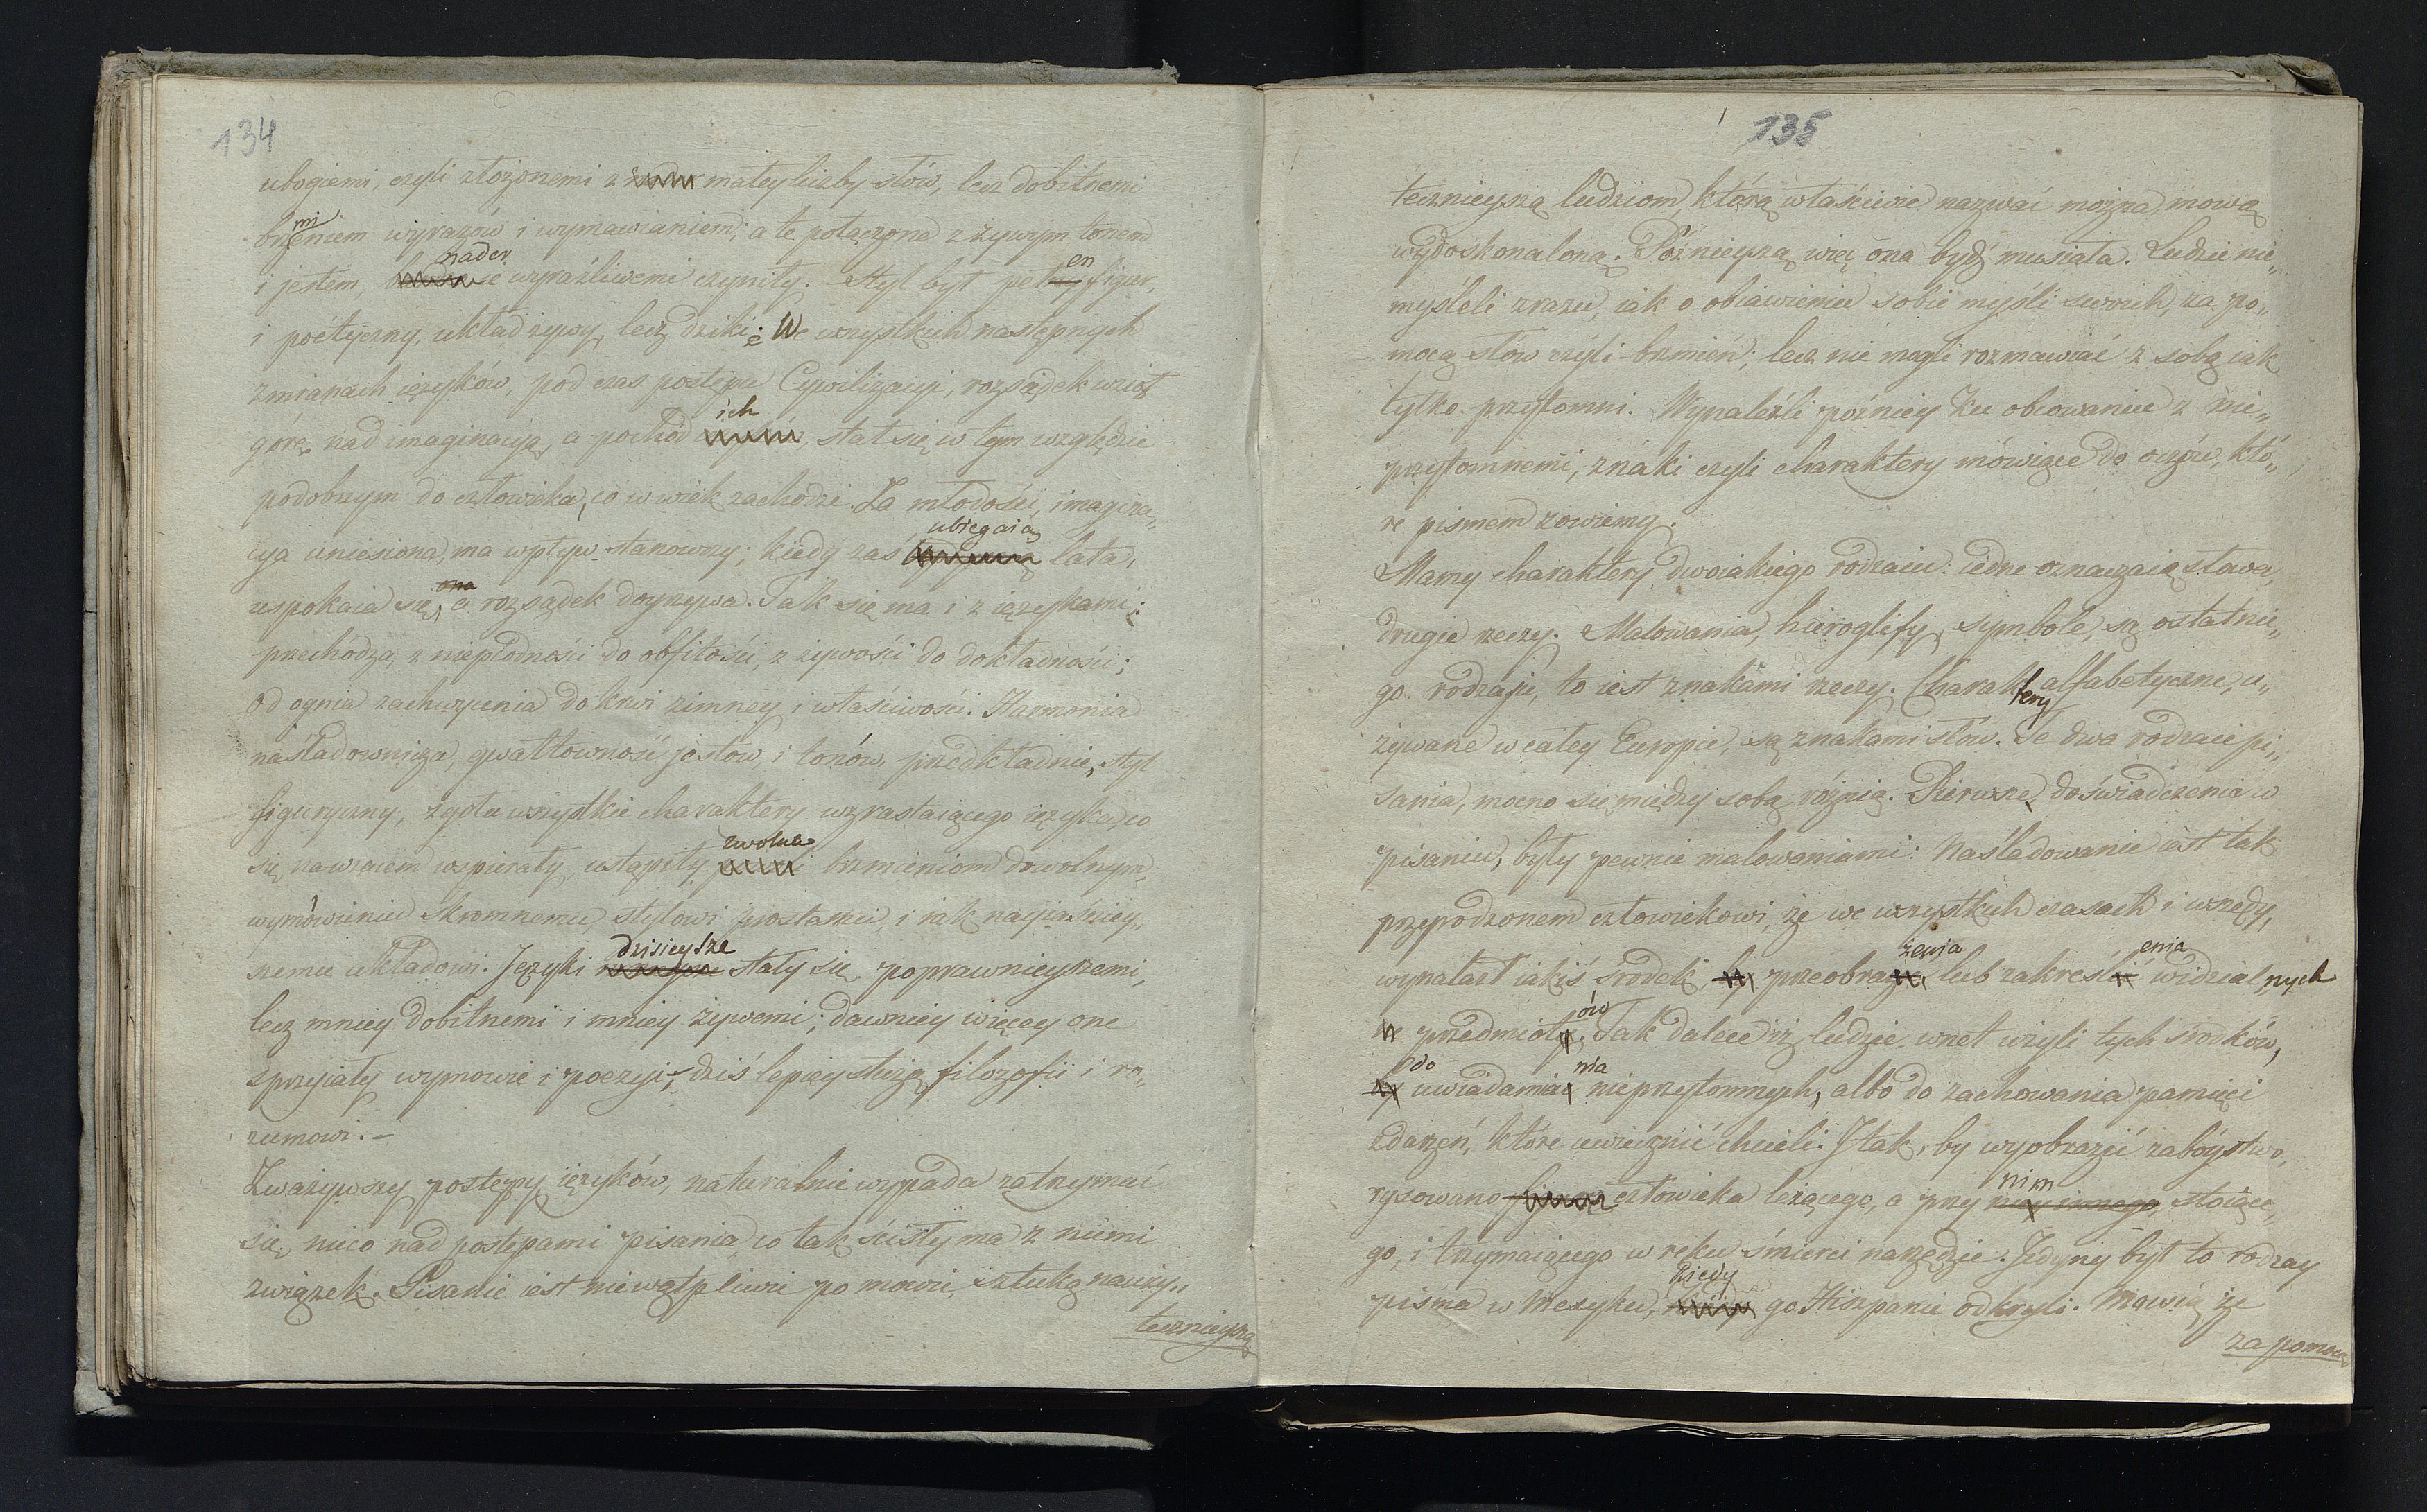 134
ubogiemi, czyli złożonemi z małey liczby słów, lecz dobitnemi
brzmieniem wyrazów i wymawianiem; a te połączone z żywym tonem
i jestem, nader ie wyraźliwemi czyniły. Styl był pełen figur,
i poetyczny, układ żywy, lecz dziki; We wszystkich następnych
zmianach ięzyków, pod czas postępu Cywilizacyi, rozsądek wziął
górę nad imaginacyą, a pochód ich stał się w tym względzie
podobnym do człowieka, co w wiek zachodzi. Za młodości, imagina„
cya uniesiona, ma wpływ stanowczy; kiedy zaś ubiegaią lata,
uspokaia się, ona a rozsądek doyrzewa. Tak się ma i z ięzykami;
przechodzą z niepłodności do obfitości, z żywości do dokładności;
od ognia zachwycenia do krwi zimney i właściwości. Harmonia
naśladownicza, gwałtowność jestów, i tonów, przedkładnie, styl
figuryczny, zgoła wszystkie charaktery wzrastaiącego ięzyka, co
się nawzaiem wspierały, ustąpiły zwolna brzmieniom dowolnym,
wymówieniu skromnemu, stylowi prostemu, i iak nayiaśniey„
szemu układowi. Języki dzisieysze stały się poprawnieyszemi,
lecz mniey dobitnemi i mniey żywemi; dawniey więcey one
sprzyiały wymowie i poezyi; dziś lepiey służą filozofii i ro„
zumowi. –
Zważywszy postępy ięzyków, naturalnie wypada zatrzymać
się, nieco nad postępami pisania, co tak ścisły ma z niemi
związek. Pisanie iest niewątpliwie po mowie, sztuką nauży„
tecznieyszą
135
tecznieyszą ludziom, którą właściwie nazwać można mową
wydoskonaloną. Poźnieyszą więc ona bydź musiała. Ludzie nie„
myśleli zrazu, iak o obiawieniu sobie myśli swoich, za po„
mocą słów czyli brzmień; lecz nie mogli rozmawiać z sobą iak
tylko przytomni. Wynaleźli poźniey ku obcowaniu z nie„
przytomnemi, znaki czyli charaktery mówiące do oczów, któ„
re pismem zowiemy.
Mamy charaktery dwoiakiego rodzaiu: iedne oznaczaią słowa,
drugie rzeczy. Malowania, hieroglify, symbole, są ostatnie„
go rodzaju, to iest znakami rzeczy. Charaktery alfabetyczne, u„
żywane w całey Europie, są znakami słów. Te dwa rodzaie pi„
sania, mocno się między sobą różnią. Pierwsze, doświadczenia w
pisaniu, były pewnie malowaniami: Naśladowanie iest tak
przyrodzonem człowiekowi, że we wszystkich czasach i wszędy,
wynalazł iakiś środek przeobrażenia lub zakreślenia widzialnych
przedmiotów. Tak dalece iż ludzie wnet użyli tych środków,
do uwiadamiania nieprzytomnych, albo do zachowania pamięci
zdarzeń, które uwiecznić chcieli. I tak, by wyobrazić zabóystwo,
rysowano człowieka leżącego, a przy nim stoiące„
go, i trzymaiącego w ręku śmierci narzędzie. Jedyny był to rodzay
pisma w Mexyku, kiedy go Hiszpanie odkryli. Mówią że
za pomocą